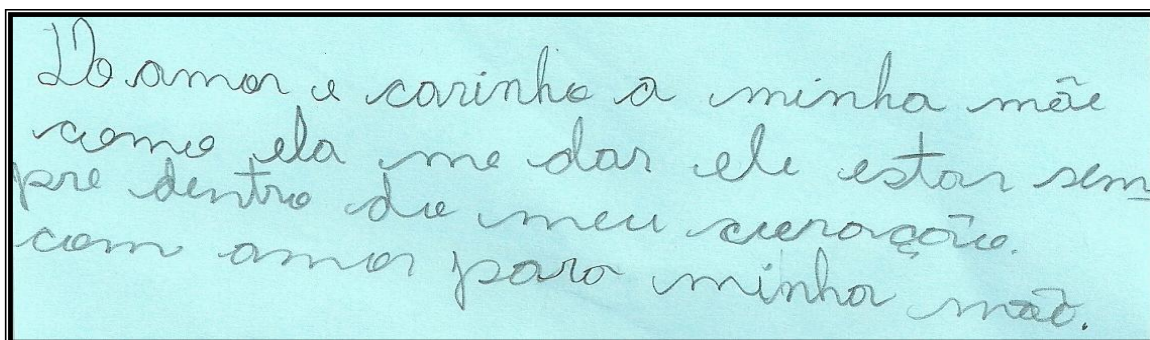 Do amor e carinho a minha mãe
como ela me dar ele estar sem
pre dentro do meu curação.
com amor para minha mãe.